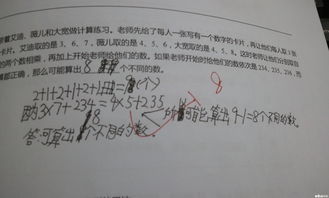 带着艾迪、薇儿和大宽做计算练习。老师先给了每人一张写有一个数字的卡片,再让他们每人取3张
卡片。艾迪取的是3、6、7,薇儿取的是4、5、6,大宽取的是4、5、8。
的两个数相乘,再加上开始老师给他们的数。如果老师开始时给他们的数依次是234、235、236,而
都正确,那么可能算出 8 个不同的数。
8
2+1+2+1+2+1=9(个)
因为3×7+234=4×5+235
所以可能算出9-1=8个不同的数。
答:可算出8个不同的数。